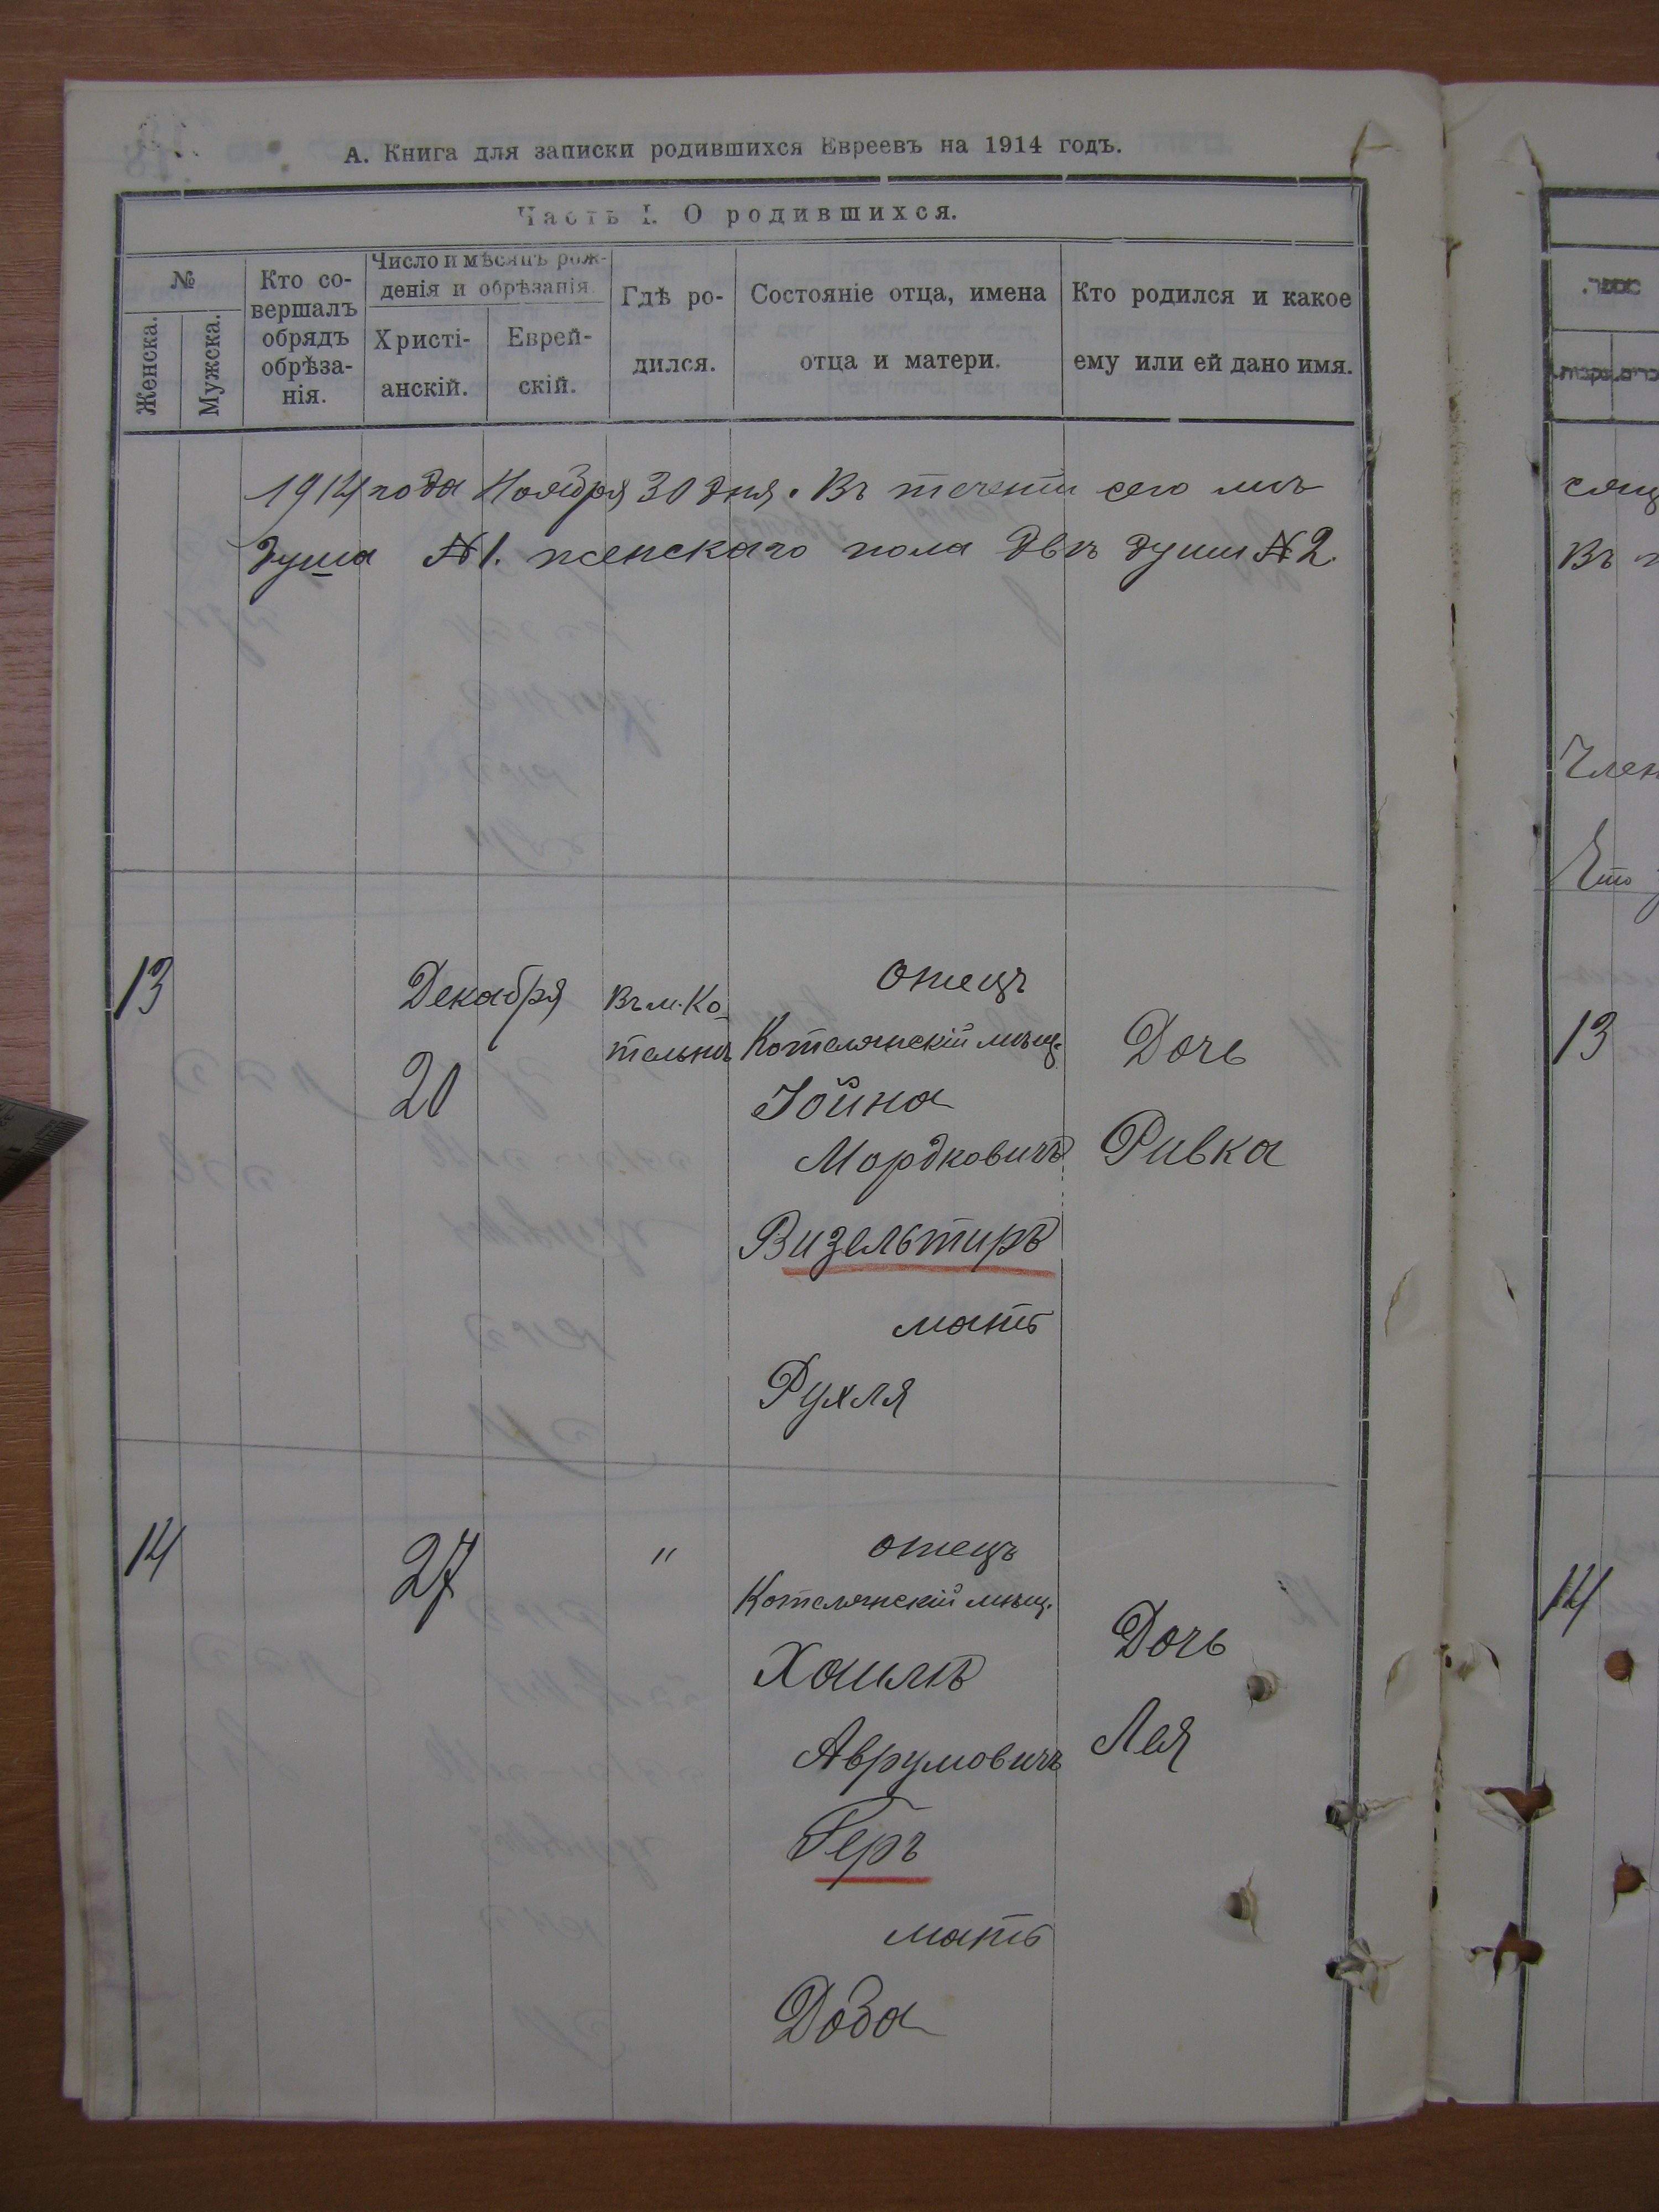 А. Книга для записки родившихся Евреевъ на 1914 годъ.
Часть I. О родившихся.
№
Женска.
Мужска.
Кто со-
вершалъ
обрядъ
обрѣза-
нія.
Число и мѣсяцъ рож-
денія и обрѣзанія.
Христі-
анскій.
Еврей-
скій.
Гдѣ ро-
дился.
Состояніе отца, имена
отца и матери.
Кто родился и какое
ему или ей дано имя.
1914 года Ноября 30 дня. Въ теченіи сего мѣ
душа № 1. женскаго пола двѣ души № 2.
13
Декабря
20
Въ м. Ко-
тельнѣ
отецъ
Котелянскій мѣщ.
Іойна
Мордковичъ
Визельтиръ
мать
Рухля
Дочь
Ривка
14
27
"
отецъ
Котелянскій мѣщ.
Хаимъ
Аврумовичъ
Геръ
мать
Доба
Дочь
Лея
סяц
Въ
Член
13
14